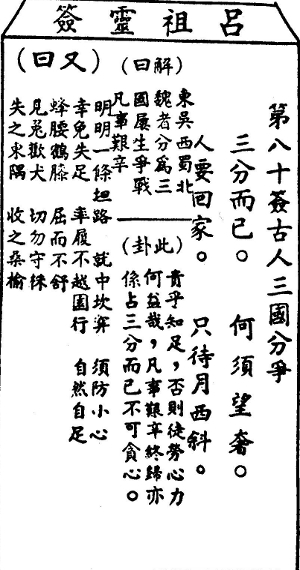 呂祖靈簽
第八十簽古人三國分爭
三分而已。 何須望奢。
人要回家。 只待月西斜。
(解曰)
東吳西蜀北
魏者分為三
國屢生爭戰
凡事艱辛
(此卦)
貴乎知足,否則徒勞心力
何益哉,凡事艱辛終歸亦
係占三分而已不可貪心。
(又曰)
明明一條坦路 就中坎穽 須防小心
幸免失足 率履不越園行 自然自足
蜂腰鶴膝 屈而不舒
見兔歡犬 切勿守株
失之東隅 收之桑榆